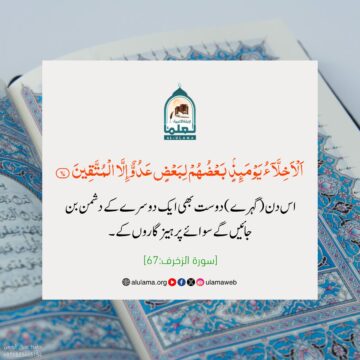 العلماء
AL-ULAMA
اَلْاَخِلَّآءُ يَوْمَىِٕذٍۭ بَعْضُهُمْ لِبَعْضٍ عَدُوٌّ اِلَّا الْمُتَّقِيْنَ
اس دن (گہرے) دوست بھی ایک دوسرے کے دشمن بن
جائیں گے سوائے پرہیز گاروں کے۔
[سورۃ الزخرف:67]
alulama.org ulamaweb